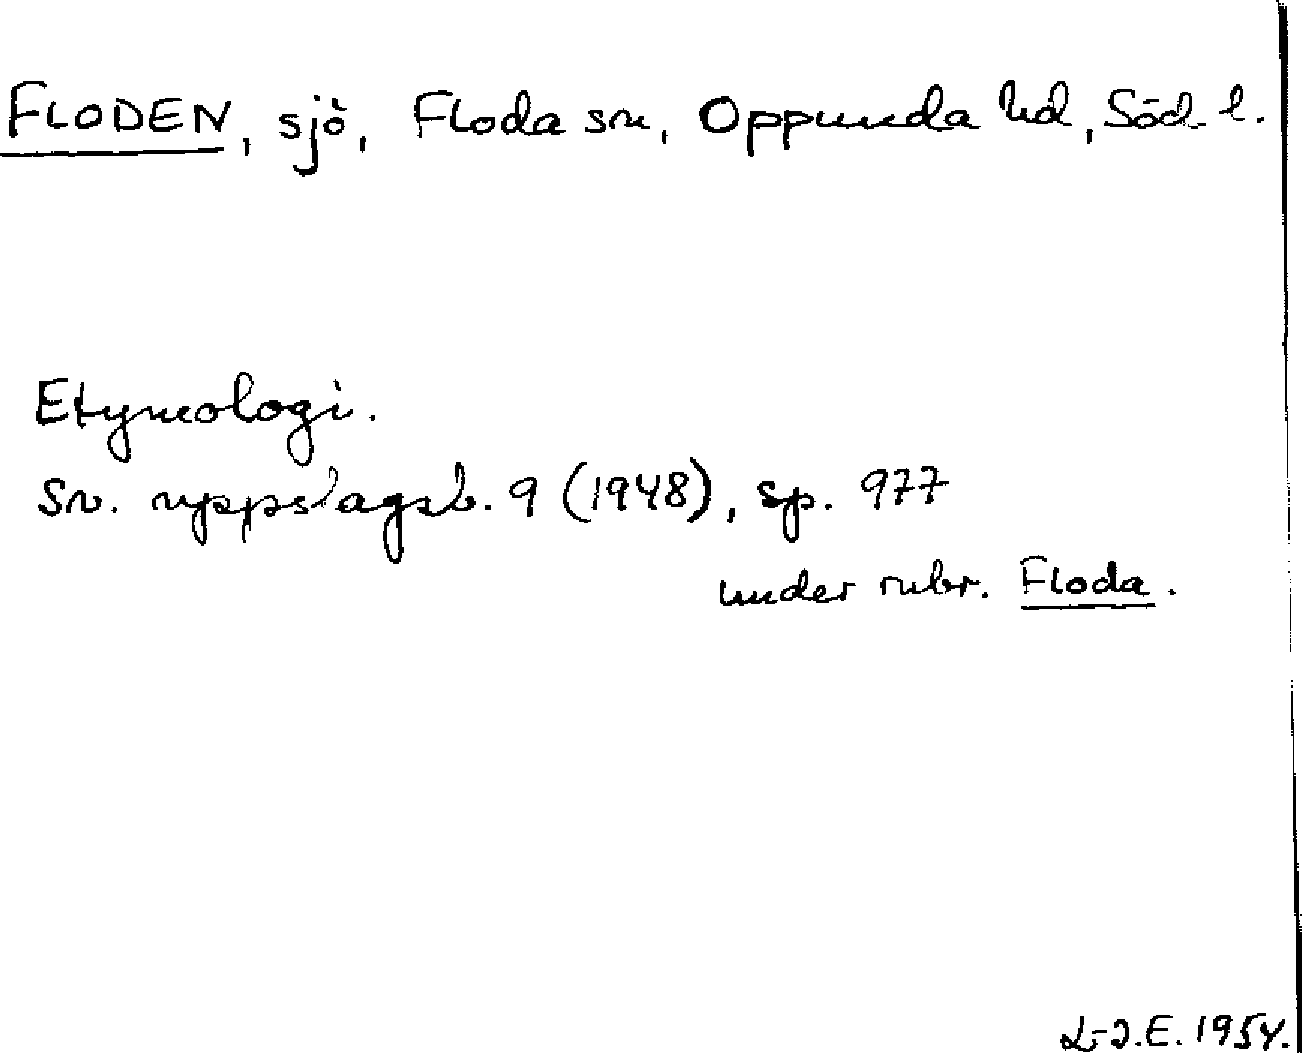 FLODEN, sjö, Floda sn, Oppunda hd, Söd. l.
Etymologi.
Sv. uppslagsb. 9 (1948), sp. 977
under rubr. Floda.
L-I.E. 1954.